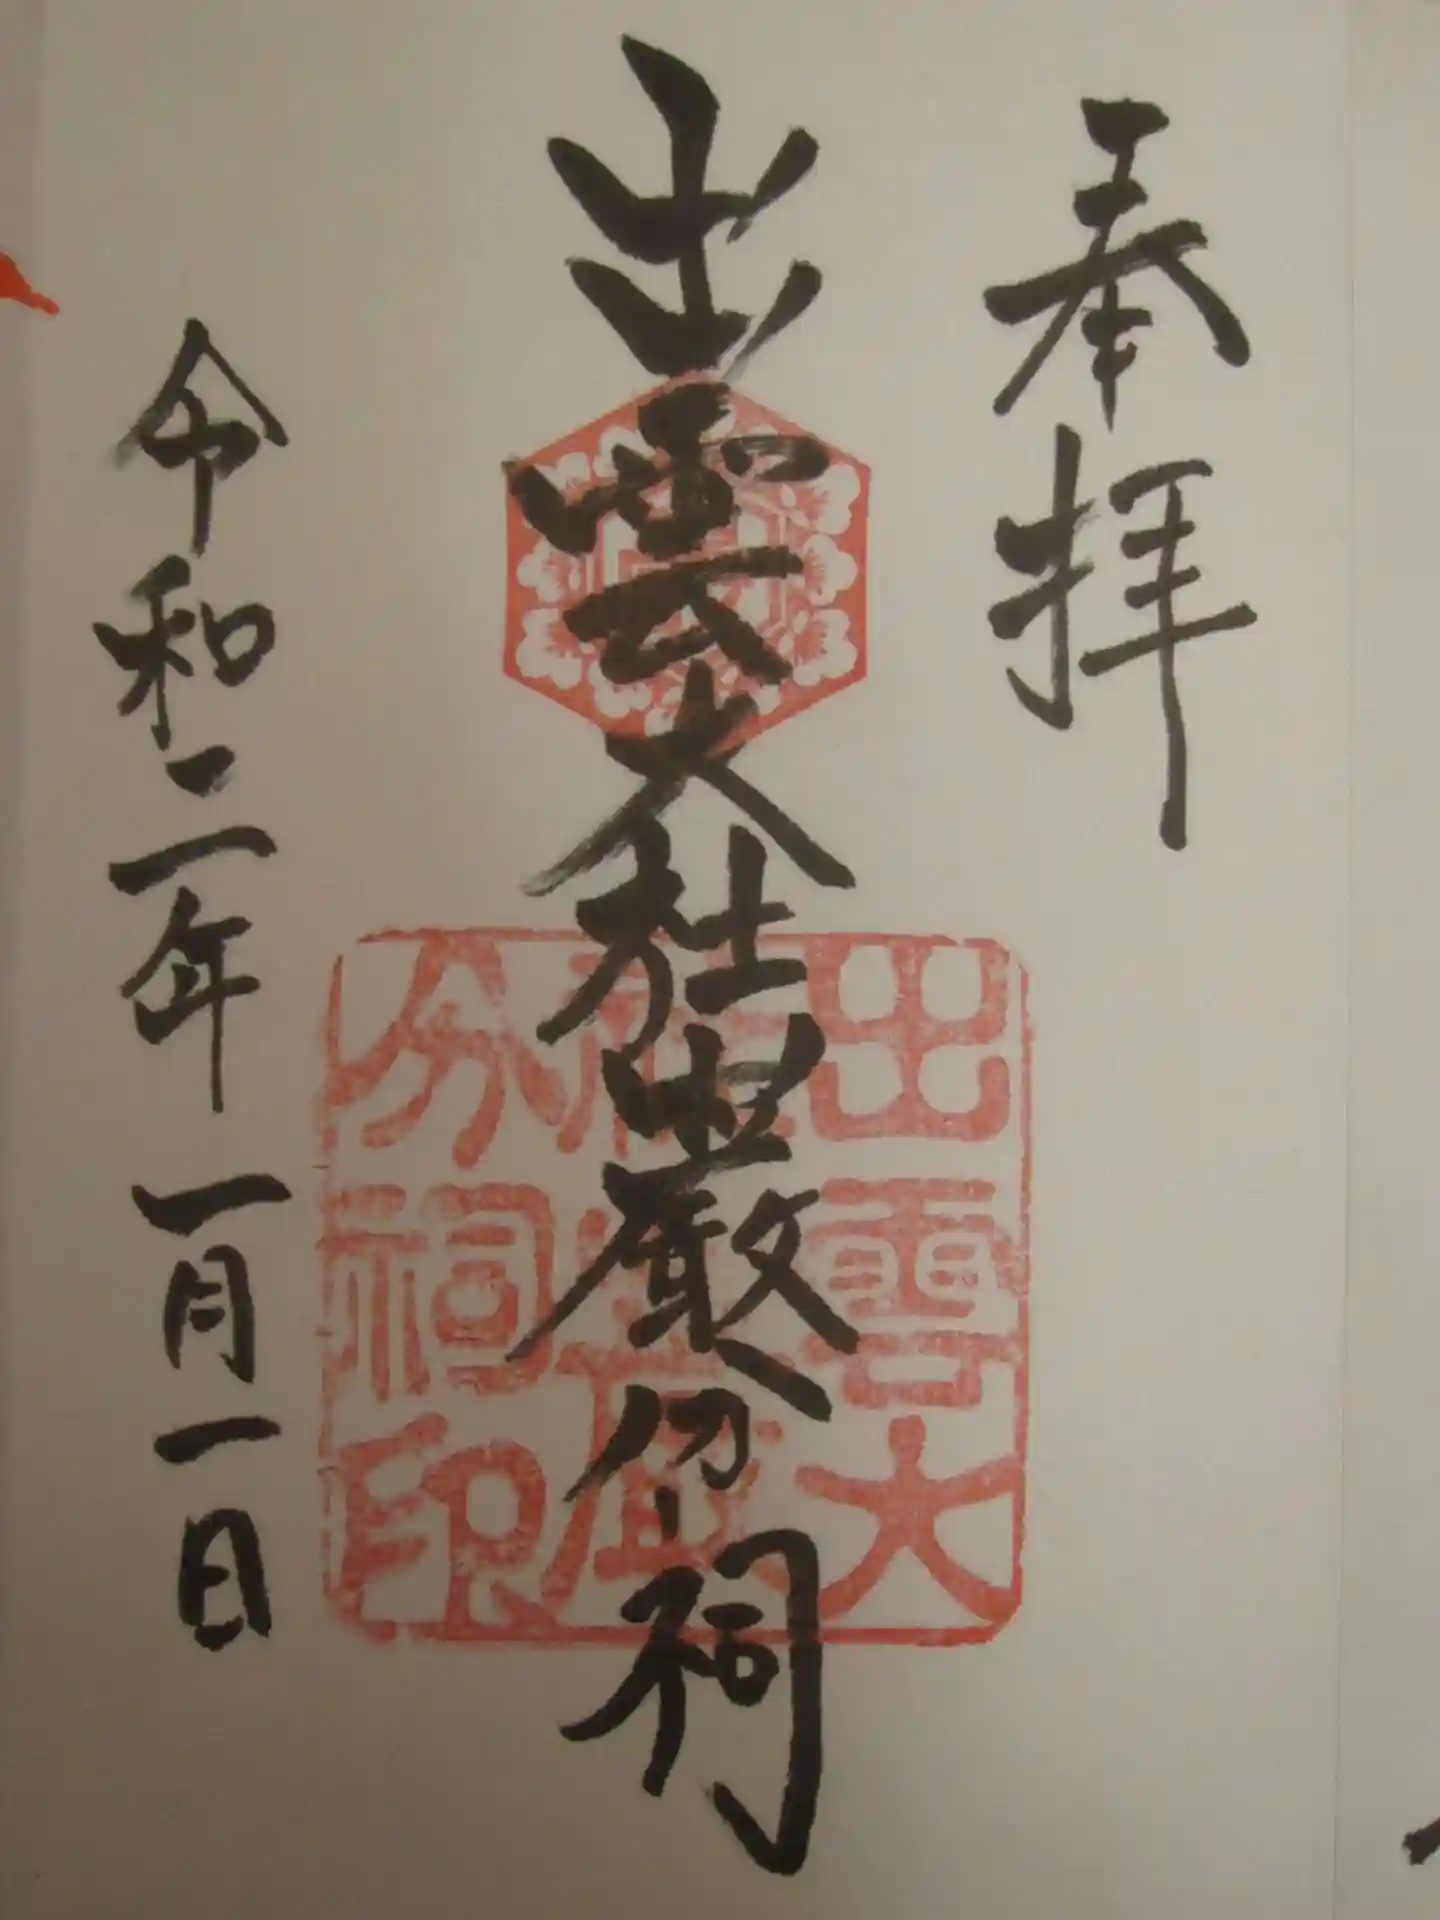 奉拝
出雲大社巌分祠
出雲大
社巌
分祠印
令和二年一月一日